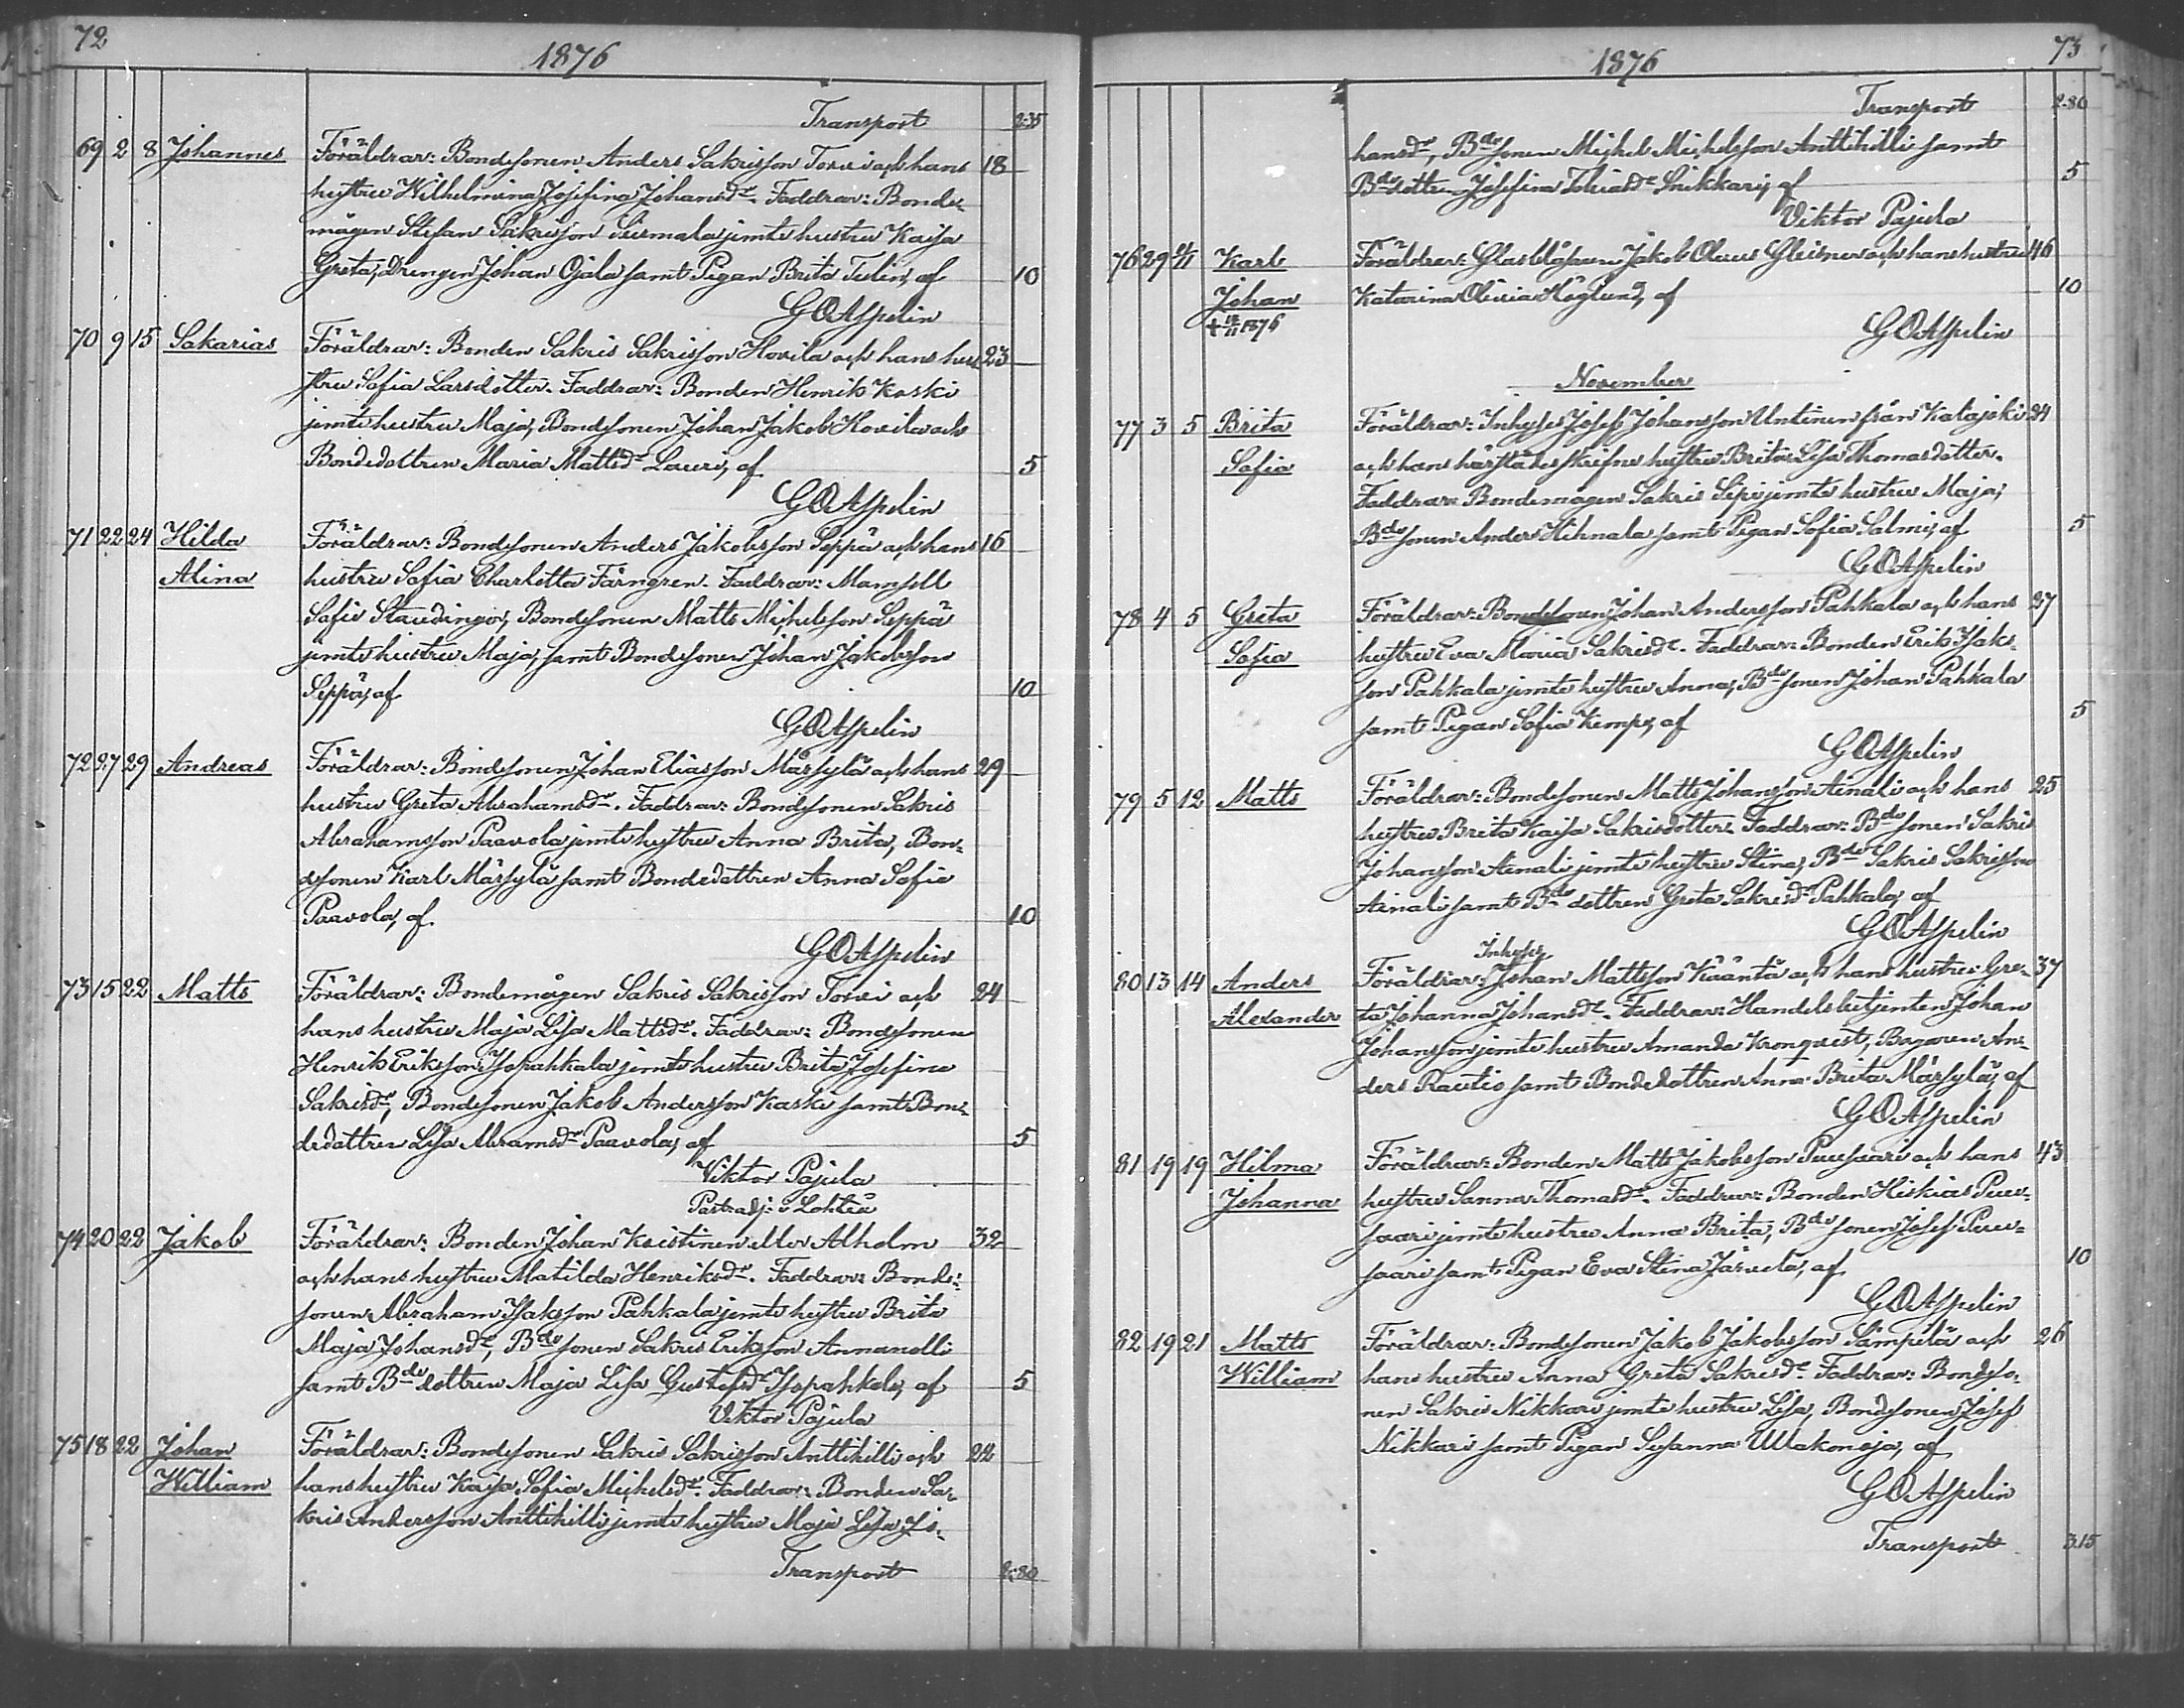 72
1876
Transport 2:35
69 2 8 Johannes Föräldrar: Bondesonen Anders Sakrisson Torvi och hans 18
hustru Wilhelmina Josefina Johansdr. Faddrar: Bonde-
mågen Stefan Sakrisson jemte hustru Kajsa
Greta, Drengen Johan Ojala samt Pigan Brita Tulin, af 10
G O Aspelin
70 9 15 Sakarias Föräldrar: Bonden Sakris Sakrisson Hovila och hans hu- 23
stru Sofia Larsdotter. Faddrar: Bonden Henrik Kaski
jemte hustru Maja, Bondesonen Johan Jakob Hovila och
Bondedottren Maria Mattsdr Lauri, af 5
G O Aspelin
71 22 24 Hilda Föräldrar: Bondesonen Anders Jakobsson Seppä och hans 16
Alina hustru Sofia Charlotta Färngren. Faddrar: Mamsell
Sofie Staudinger, Bondesonen Matts Michelsson Seppä
jemte hustru Maja, samt Bondesonen Johan Jakobsson
Seppä, af 10
G O Aspelin
72 27 29 Andreas Föräldrar: Bondesonen Johan Eliasson Märsylä och hans 29
hustru Greta Abrahamsdr. Faddrar: Bondesonen Sakris
Abrahamsson Paavola jemte hustru Anna Brita, Bon-
desonen Karl Märsylä samt Bondedottren Anna Sofia
Paavola, af 10
G O Aspelin
73 15 22 Matts Föräldrar: Bondemågen Sakris Sakrisson Torvi och 24
hans hustru Maja Lisa Mattsdr. Faddrar: Bondesonen
Henrik Eriksson Isopahkala jemte hustru Brita Josefina
Sakrisdr, Bondesonen Jakob Andersson Kaski samt Bon-
dedottren Lisa Abramsdr Paavola, af 5
Viktor Pajula
Past. adj: i Lohteå
74 20 22 Jakob Föräldrar: Bonden Johan Kristinen eller Alholm 32
och hans hustru Matilda Henriksdr. Faddrar: Bonde-
sonen Abraham Isaksson Pahkala jemte hustru Brita
Maja Johansdr, Bdesonen Sakris Eriksson Annanolli
samt Bdedottren Maja Lisa Gustafsdr Isopahkala, af 5
Viktor Pajula
75 18 22 Johan Föräldrar: Bondesonen Sakris Sakrisson Anttihilli och 22
William hans hustru Kajsa Sofia Michelsdr. Faddrar: Bonden Sa-
kris Andersson Anttihilli jemte hustru Maja Lisa Jo-
Transport 2:80
1876
73
Transport 2:80
hansdr, Bdesonen Michel Michelsson Anttihilli samt
Bdedottren Josefina Tobiasdr Snikkari, af 5
Viktor Pajula
76 29 Karl Föräldrar: Glasblåsaren Jakob Olaus Gleisner och hans hustru 46
Johan Katarina Olivia Höglund, af 10
1876
G O Aspelin
November
77 3 5 Brita Föräldrar: Inhyses Josef Johansson Untinen från Kalajoki 24
Sofia och hans härstädes skrifne hustru Brita Lisa Thomasdotter.
Faddrar: Bondemågen Sakris Sipi jemte hustru Maja,
Bdesonen Anders Hihnala samt Pigan Sofia Salmi, af 5
G O Aspelin
78 4 5 Greta Föräldrar: Bondesonen Johan Andersson Pahkala och hans 27
Sofia hustru Eva Maria Sakrisdr. Faddrar: Bonden Erik Isaks-
son Pahkala jemte hustru Anna, Bdesonen Johan Pahkala
samt Pigan Sofia Kemps, af 5
G O Aspelin
79 5 12 Matts Föräldrar: Bondesonen Matts Johansson Ainali och hans 25
hustru Brita Kajsa Sakrisdotter. Faddrar: Bdesonen Sakris
Johansson Ainali jemte hustru Stina, Bde Sakris Sakrisson
Ainali samt Bdedottren Greta Sakrisdr Pahkala, af
G O Aspelin
Inhyses
80 13 14 Anders Föräldrar: Johan Mattsson Kääntä och hans hustru Gre- 37
Alexander ta Johanna Johansdr. Faddrar: Handelsbetjenten Johan
Johansson jemte hustru Amanda Kronqvist, Bagaren An-
ders Rautio samt Bondedottren Anna Brita Märsylä, af
G O Aspelin
81 19 19 Hilma Föräldrar: Bonden Matts Jakobsson Puusaari och hans 43
Johanna hustru Sanna Thomasdr. Faddrar: Bonden Hiskias Puu-
saari jemte hustru Anna Brita, Bdesonen Josef Puu-
saari samt Pigan Eva Stina Järvelä, af 10
G O Aspelin
82 19 21 Matts Föräldrar: Bondesonen Jakob Jakobsson Sämpelä och 26
William hans hustru Anna Greta Sakrisdr. Faddrar: Bondeso-
nen Sakris Nikkari jemte hustru Lisa, Bondesonen Josef
Nikkari samt Pigan Susanna Ullakonoja, af
G O Aspelin
Transport 3.15